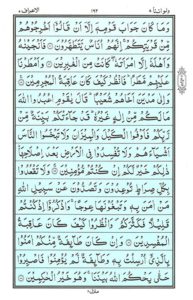 ولو اننا ٨ ١٦٢ الاعراف ٧
وَمَا كَانَ جَوَابَ قَوْمِهٖٓ اِلَّآ اَنْ قَالُوْٓا اَخْرِجُوْهُمْ
مِّنْ قَرْيَتِكُمْ اِنَّهُمْ اُنَاسٌ يَّتَطَهَّرُوْنَ ۝ فَاَنْجَيْنٰهُ
وَاَهْلَهٗٓ اِلَّا امْرَاَتَهٗ كَانَتْ مِنَ الْغٰبِرِيْنَ ۝ وَاَمْطَرْنَا
عَلَيْهِمْ مَّطَرًا فَانْظُرْ كَيْفَ كَانَ عَاقِبَةُ الْمُجْرِمِيْنَ ۝
وَاِلٰى مَدْيَنَ اَخَاهُمْ شُعَيْبًا قَالَ يٰقَوْمِ اعْبُدُوا اللّٰهَ
مَا لَكُمْ مِّنْ اِلٰهٍ غَيْرُهٗ قَدْ جَآءَتْكُمْ بَيِّنَةٌ مِّنْ
رَّبِّكُمْ فَاَوْفُوا الْكَيْلَ وَالْمِيْزَانَ وَلَا تَبْخَسُوا النَّاسَ
اَشْيَآءَهُمْ وَلَا تُفْسِدُوْا فِي الْاَرْضِ بَعْدَ اِصْلَاحِهَا
ذٰلِكُمْ خَيْرٌ لَّكُمْ اِنْ كُنْتُمْ مُّؤْمِنِيْنَ ۝ وَلَا تَقْعُدُوْا
بِكُلِّ صِرَاطٍ تُوْعِدُوْنَ وَتَصُدُّوْنَ عَنْ سَبِيْلِ اللّٰهِ
مَنْ اٰمَنَ بِهٖ وَتَبْغُوْنَهَا عِوَجًا وَاذْكُرُوْٓا اِذْ كُنْتُمْ
قَلِيْلًا فَكَثَّرَكُمْ وَانْظُرُوْا كَيْفَ كَانَ عَاقِبَةُ
الْمُفْسِدِيْنَ ۝ وَاِنْ كَانَ طَآئِفَةٌ مِّنْكُمْ اٰمَنُوْا
بِالَّذِيْٓ اُرْسِلْتُ بِهٖ وَطَآئِفَةٌ لَّمْ يُؤْمِنُوْا فَاصْبِرُوْا
حَتّٰى يَحْكُمَ اللّٰهُ بَيْنَنَا وَهُوَ خَيْرُ الْحٰكِمِيْنَ ۝
منزل ٢